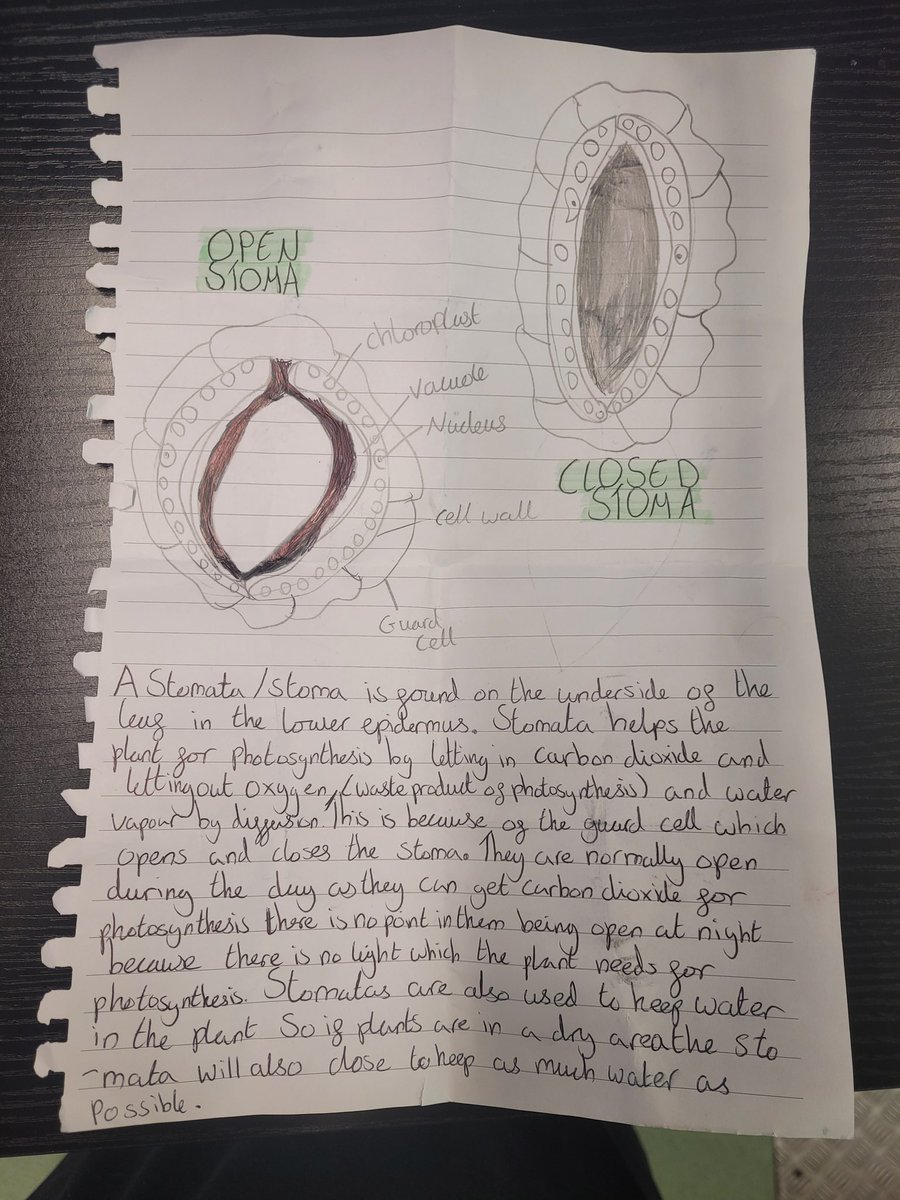 OPEN
STOMA
chloroplast
Vacuole
Nucleus
cell wall
Guard
cell
CLOSED
STOMA
A Stomata/stoma is found on the underside of the
leaf in the lower epidermus. Stomata helps the
plant for photosynthesis by letting in carbon dioxide and
letting out oxygen, (waste product of photosynthesis) and water
vapour by diffusion. This is because of the guard cell which
opens and closes the stoma. They are normally open
during the day as they can get carbon dioxide for
photosynthesis there is no point in them being open at night
because there is no light which the plant needs for
photosynthesis. Stomatas are also used to keep water
in the plant So if plants are in a dry area the sto
-mata will also close to keep as much water as
possible.